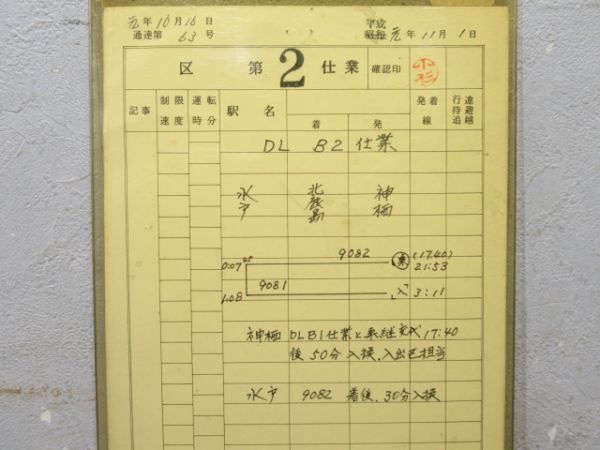 元年10月16日
通達第 63 号
平成
昭和 元 年 11 月 1 日
区 第 2 仕業 確認印 小杉
記事 制限速度 運転時分 駅名 着 発 発着線 行違待避追越
DL B2 仕業
水戸 北鹿島 神栖
9082 (17:40)
0:07 21:53
9081
1:08 入 3:11
神栖 DLB1仕業と乗継完了17:40
後50分入換、入出区担当
水戸 9082 着後、30分入換